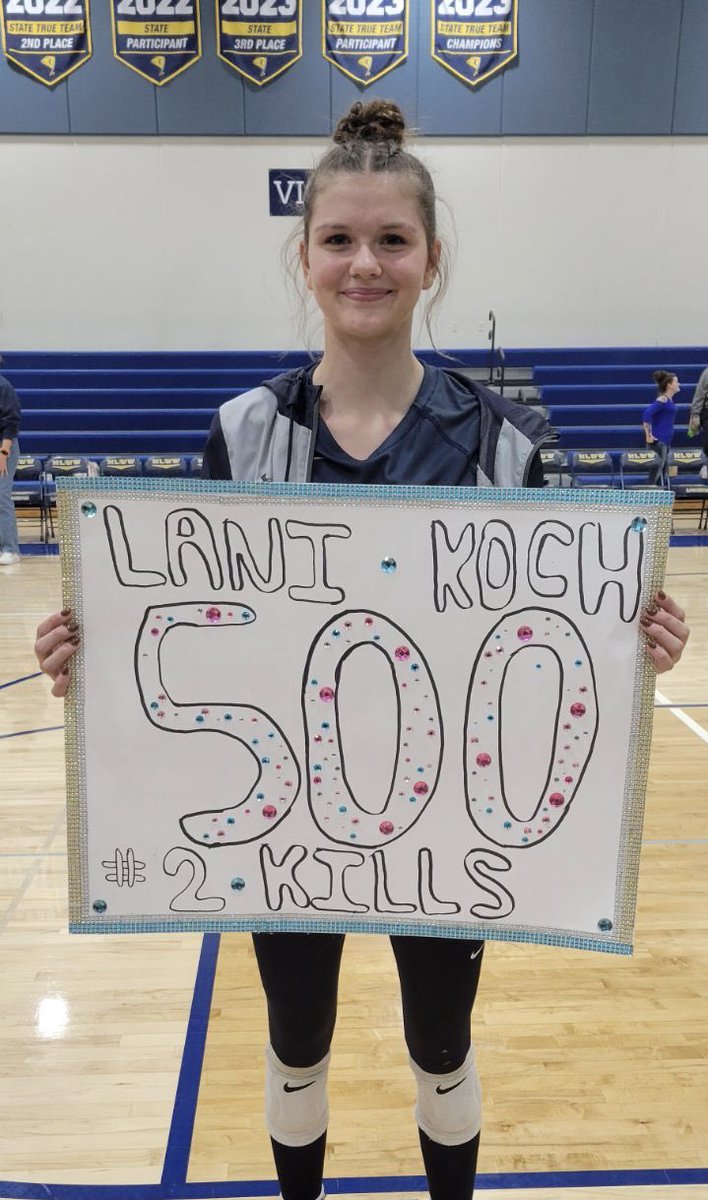 2022
STATE TRUE TEAM
2ND PLACE
2022
STATE
PARTICIPANT
2023
STATE
3RD PLACE
2023
STATE TRUE TEAM
PARTICIPANT
2023
STATE TRUE TEAM
CHAMPIONS
VI
LANI KOCH
500
#2 KILLS
HLWW
HLWW